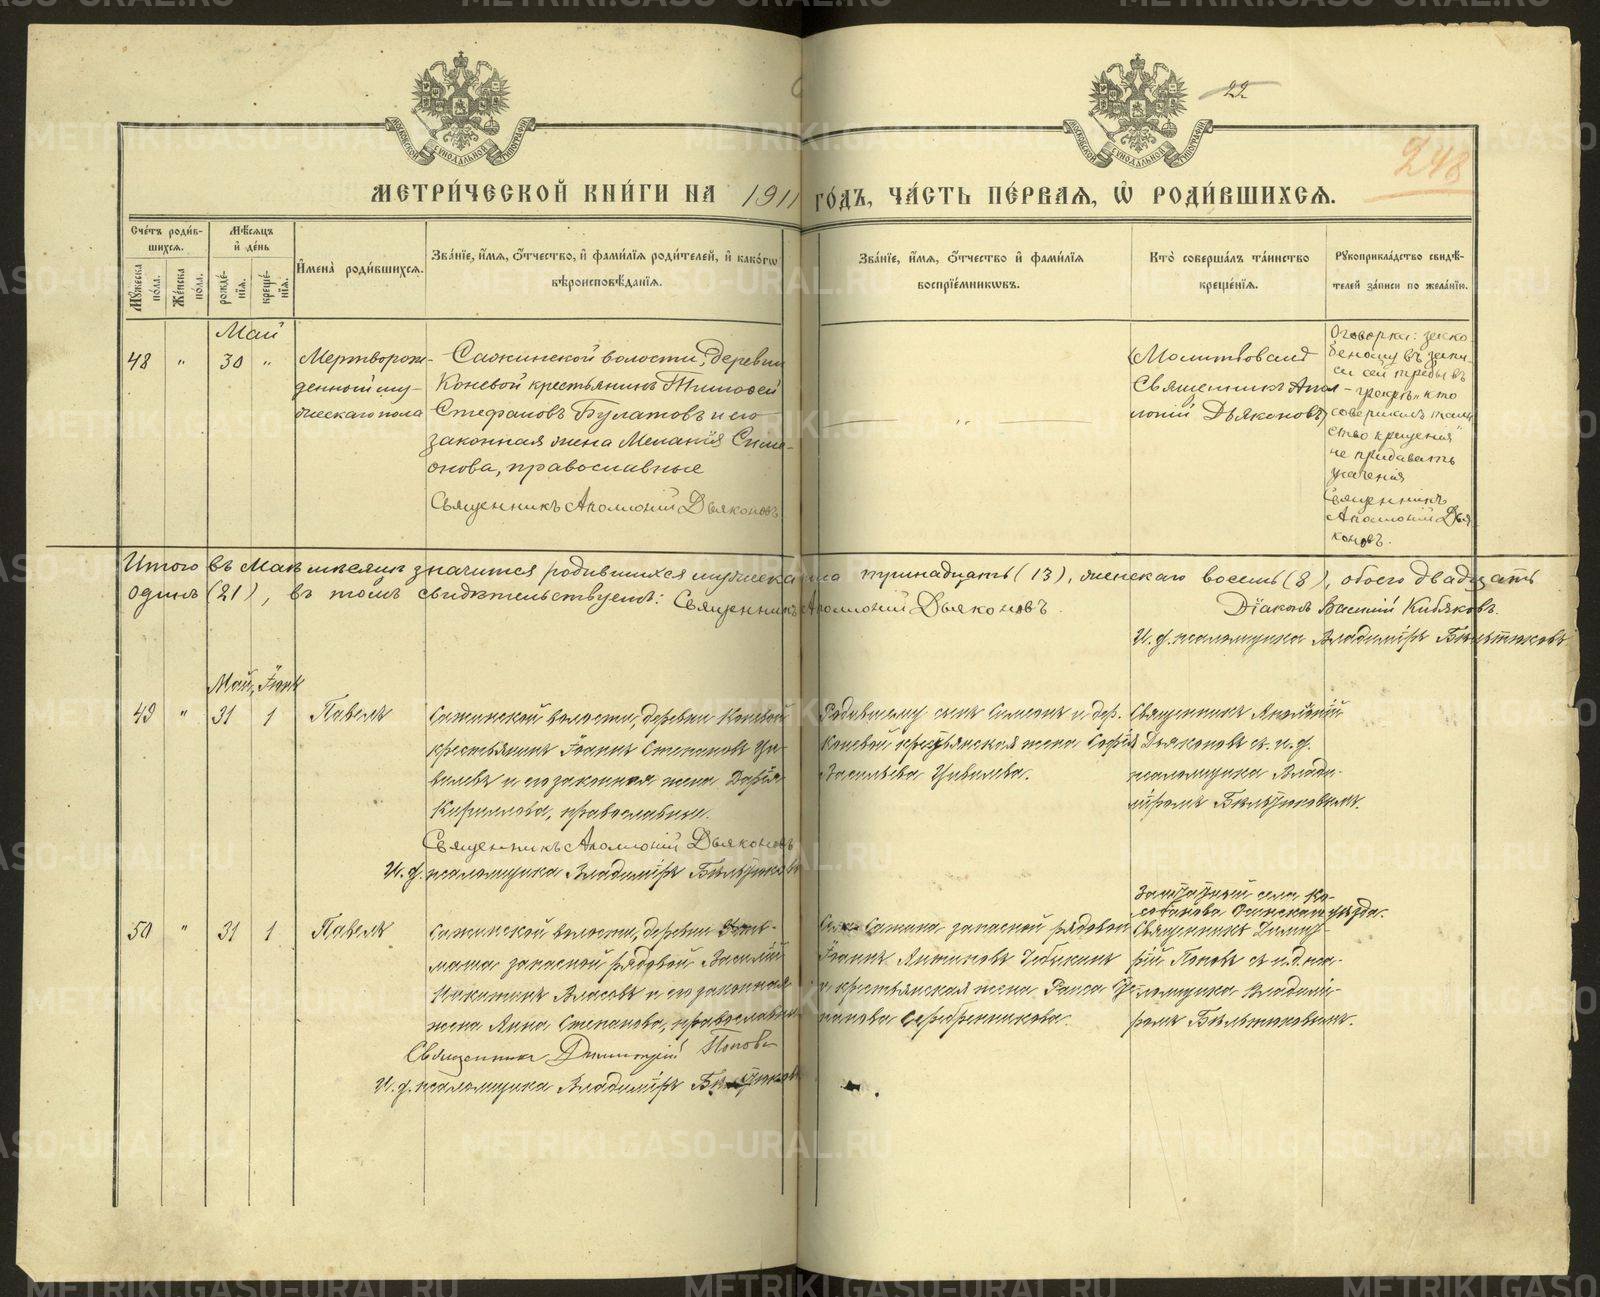 22
248
МОСКОВСКОЙ СѴНОДАЛЬНОЙ ТИПОГРАФІИ
МОСКОВСКОЙ СѴНОДАЛЬНОЙ ТИПОГРАФІИ
МЕТРИ́ЧЕСКОЙ КНИ́ГИ НА 1911 ГО́ДЪ, ЧА́СТЬ ПЕ́РВАЯ, Ѽ РОДИ́ВШИХСЯ.
Сче́тъ роди́в-
шихся.
Мѣ́сяцъ
и҆ де́нь
Му́жеска
по́ла.
Же́нска
по́ла.
рожде́-
нїя.
креще́-
нїя.
И҆мена̀ роди́вшихся.
Зва́нїе, и҆́мя, ѻ҆́тчество, и҆ фами́лїя роди́телей, и҆ како́гѡ
вѣроисповѣ́данїя.
Зва́нїе, и҆́мя, ѻ҆́тчество и҆ фами́лїя
воспрїе́мникѡвъ.
Кто̀ соверша́лъ та́инство
креще́нїя.
Рукоприкла́дство свидѣ́-
телей за́писи по жела́нїю.
Май
48 " 30 " Мертворож-
денный му-
жескаго пола
Сажинской волости, деревни
Коневой крестьянинъ Тимофей
Стефановъ Булатовъ и его
законная жена Меланія Симе-
онова, православные
Священникъ Аполлоній Дьяконовъ
— " —
(Молитвовалъ
Священникъ Апол-
лоній Дьяконовъ)
Оговорка: зачко-
беному въ запи-
си сей требы въ
графѣ „кто
совершалъ таин-
ство крещенія"
не придавать
значенія
Священникъ
Аполлоній Дья-
коновъ.
Итого въ Маѣ мѣсяцѣ значится родившихся мужеска пола тринадцать (13), женскаго восемь (8), обоего двадцать
одинъ (21), въ томъ свидѣтельствуемъ: Священникъ Аполлоній Дьяконовъ. Діаконъ Василій Кибяковъ.
И. д. псаломщика Владиміръ Бѣльтюковъ
Май, Іюнь
49 " 31 1 Павелъ
Сажинской волости, деревни Коневой
крестьянинъ Іоаннъ Степановъ Ци-
вилевъ и его законная жена Дарія
Кириллова, православные.
Священникъ Аполлоній Дьяконовъ
И. д. псаломщика Владиміръ Бѣльтюковъ
Родившему сынъ Симеонъ и дер.
Коневой крестьянская жена Софія
Васильева Цивилева.
Священникъ Аполлоній
Дьяконовъ съ и. д.
псаломщика Влади-
міромъ Бѣльтюковымъ.
50 " 31 1 Павелъ
Сажинской волости, деревни
маша запасной рядовой Василій
Никитинъ Власовъ и его законная
жена Анна Степанова, православн-
Священникъ Димитрій Поповъ
И. д. псаломщика Владиміръ Бѣльтюковъ
Села Сажина запасной рядовой
Іоаннъ Антиповъ
и крестьянская жена Раиса
Серебренникова.
Заштатный села Ко-
Осинскаго уѣзда.
Священникъ Димит-
рій Поповъ съ и.д. пса-
ломщика Владимі-
ромъ Бѣльтюковымъ.
METRIKI.GASO-URAL.RU